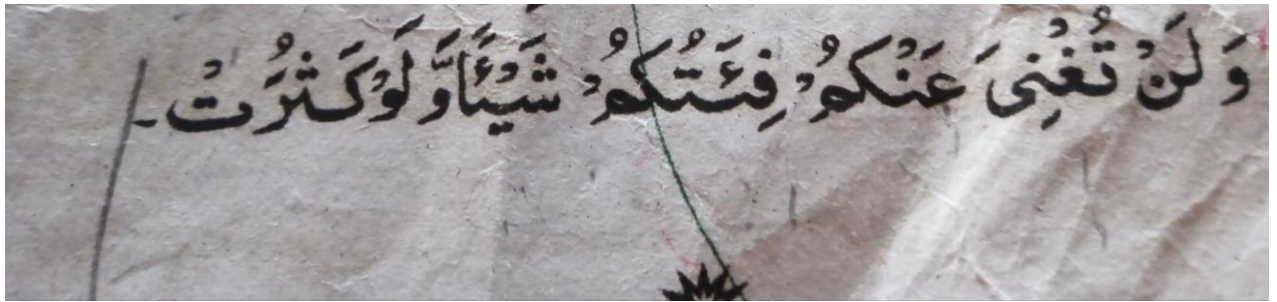 وَلَنْ تُغْنِیَ عَنْكُمْ فِئَتُكُمْ شَيْئًا وَّلَوْ كَثُرَتْ۔